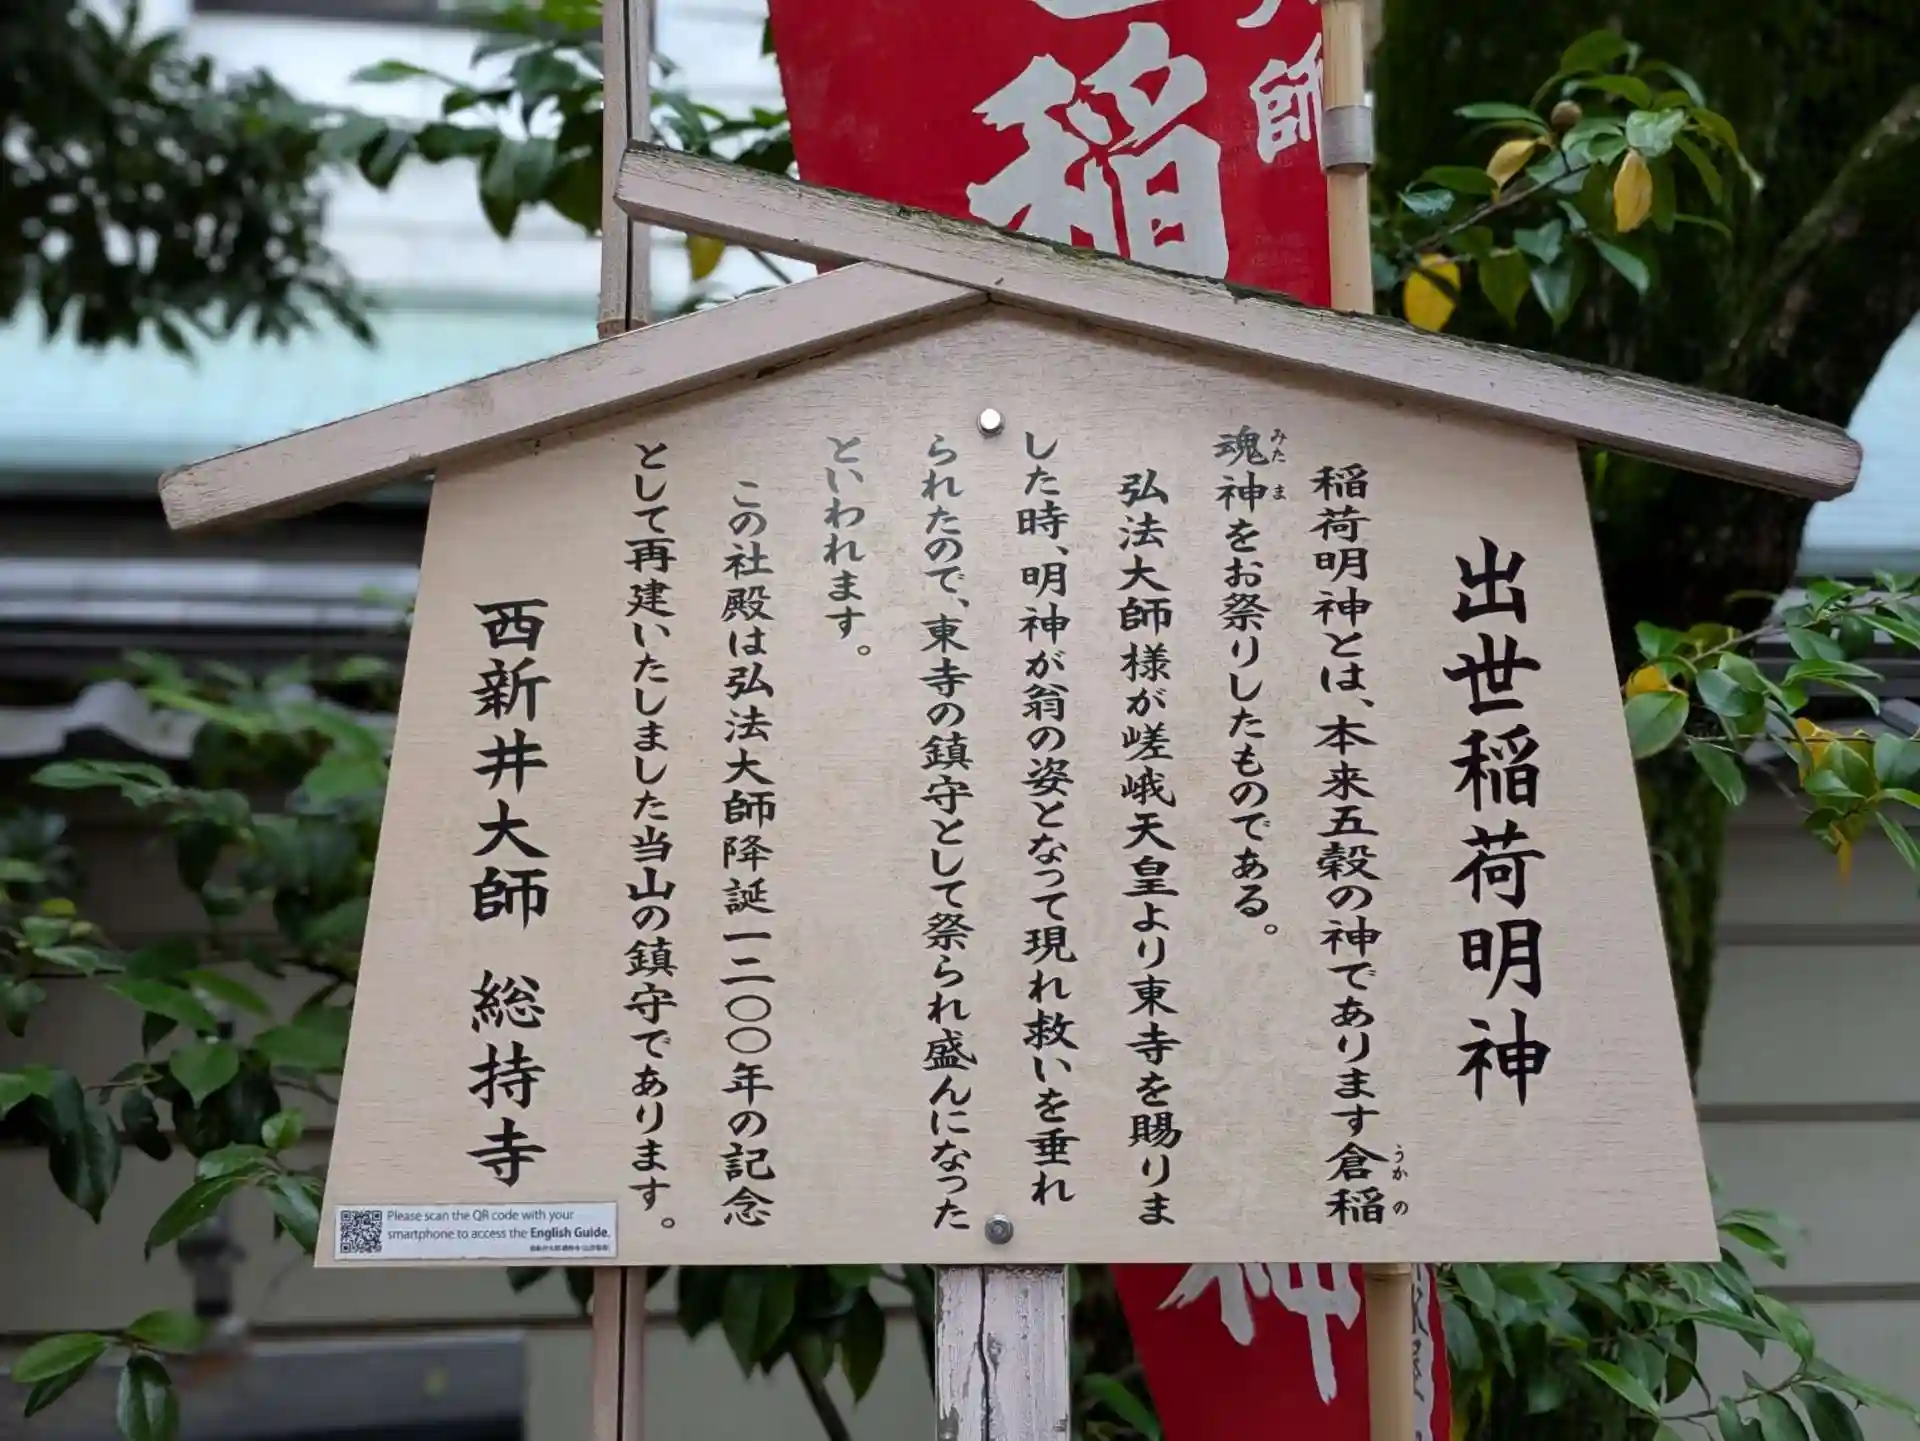 師
稲
出世稲荷明神
稲荷明神とは、本来五穀の神であります倉稲
うかの
魂神をお祭りしたものである。
みたま
弘法大師様が嵯峨天皇より東寺を賜りま
した時、明神が翁の姿となって現れ救いを垂れ
られたので、東寺の鎮守として祭られ盛んになった
といわれます。
この社殿は弘法大師降誕一二〇〇年の記念
として再建いたしました当山の鎮守であります。
西新井大師 総持寺
Please scan the QR code with your
smartphone to access the English Guide.
神